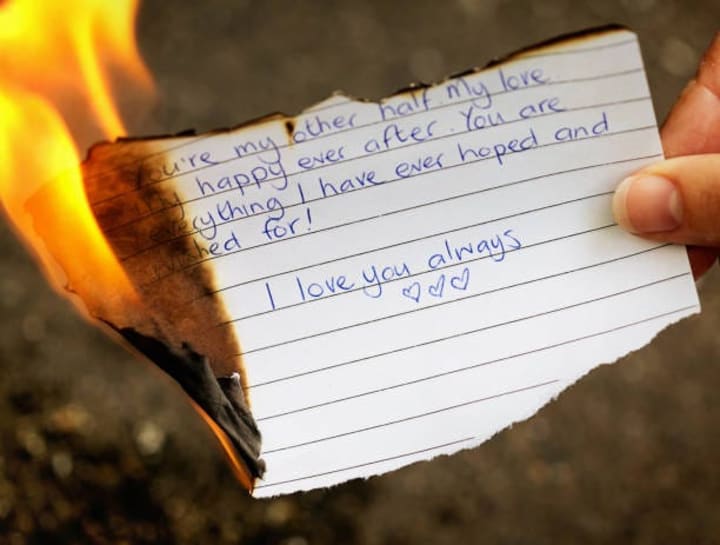 You're my other half. My love
my happy ever after. You are
everything I have ever hoped and
wished for!
I love you always
♡♡♡